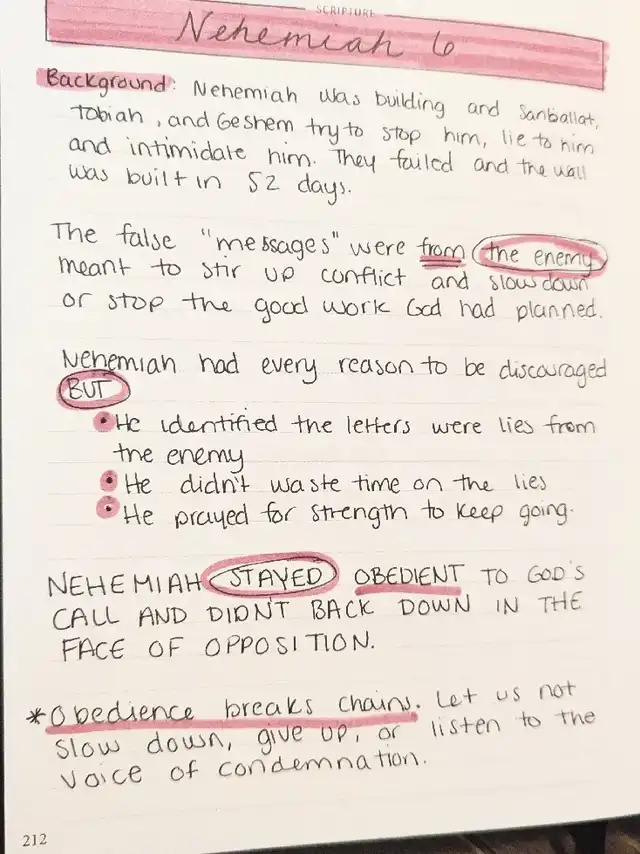 SCRIPTURE
Nehemiah 6
Background: Nehemiah was building and Sanballat,
Tobiah, and Geshem try to stop him, lie to him
and intimidate him. They failed and the wall
was built in 52 days.
The false "messages" were from the enemy
meant to stir up conflict and slow down
or stop the good work God had planned.
Nehemiah had every reason to be discouraged
BUT
• He identified the letters were lies from
the enemy
• He didn't waste time on the lies
• He prayed for strength to keep going.
NEHEMIAH STAYED OBEDIENT TO GOD'S
CALL AND DIDN'T BACK DOWN IN THE
FACE OF OPPOSITION.
*Obedience breaks chains. Let us not
slow down, give up, or listen to the
voice of condemnation.
212